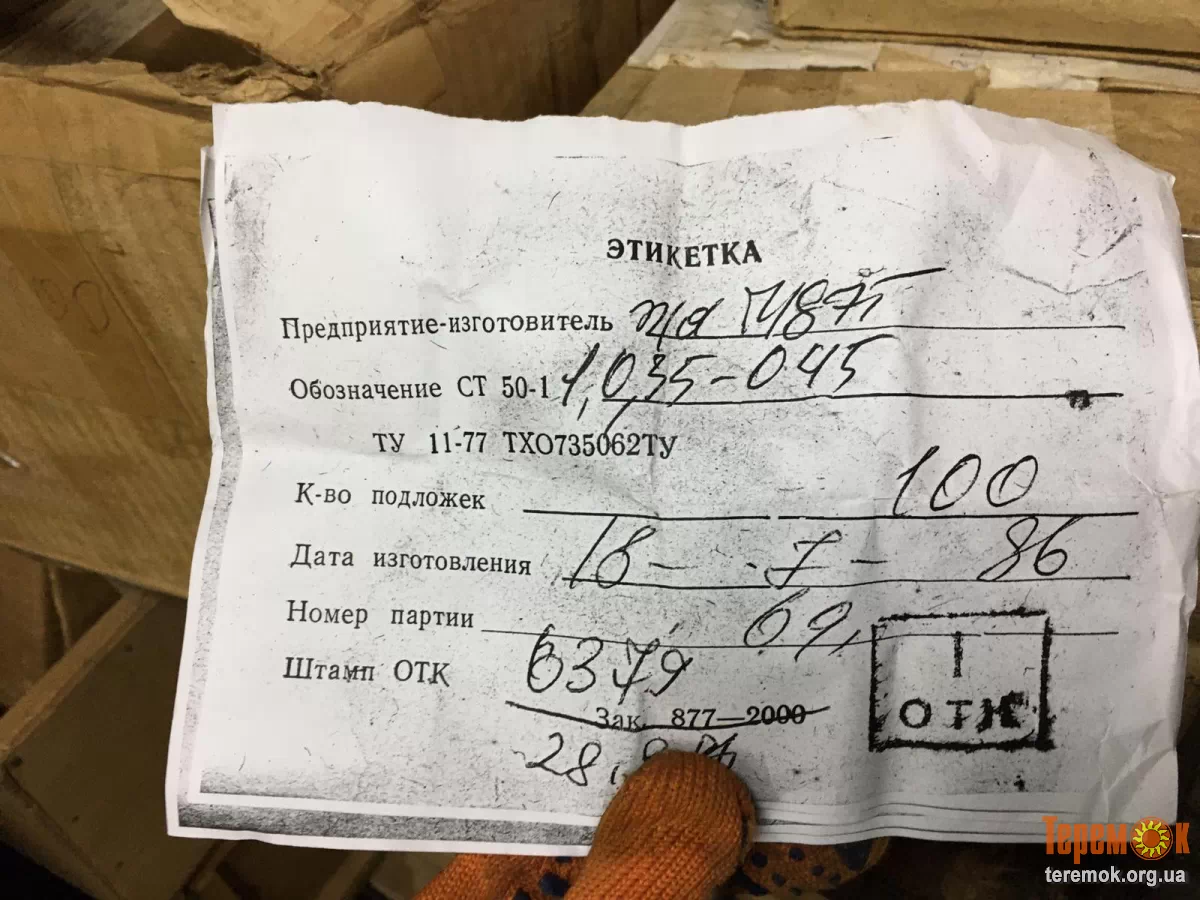 ЭТИКЕТКА
Предприятие-изготовитель п/я Г4875
Обозначение СТ 50-1 1,035-045
ТУ 11-77 ТХО735062ТУ
К-во подложек 100
Дата изготовления 18- -7- 86
Номер партии 69,
Штамп ОТК 6379
1
ОТК
Зак. 877—2000
28,
ТеремОк
teremok.org.ua